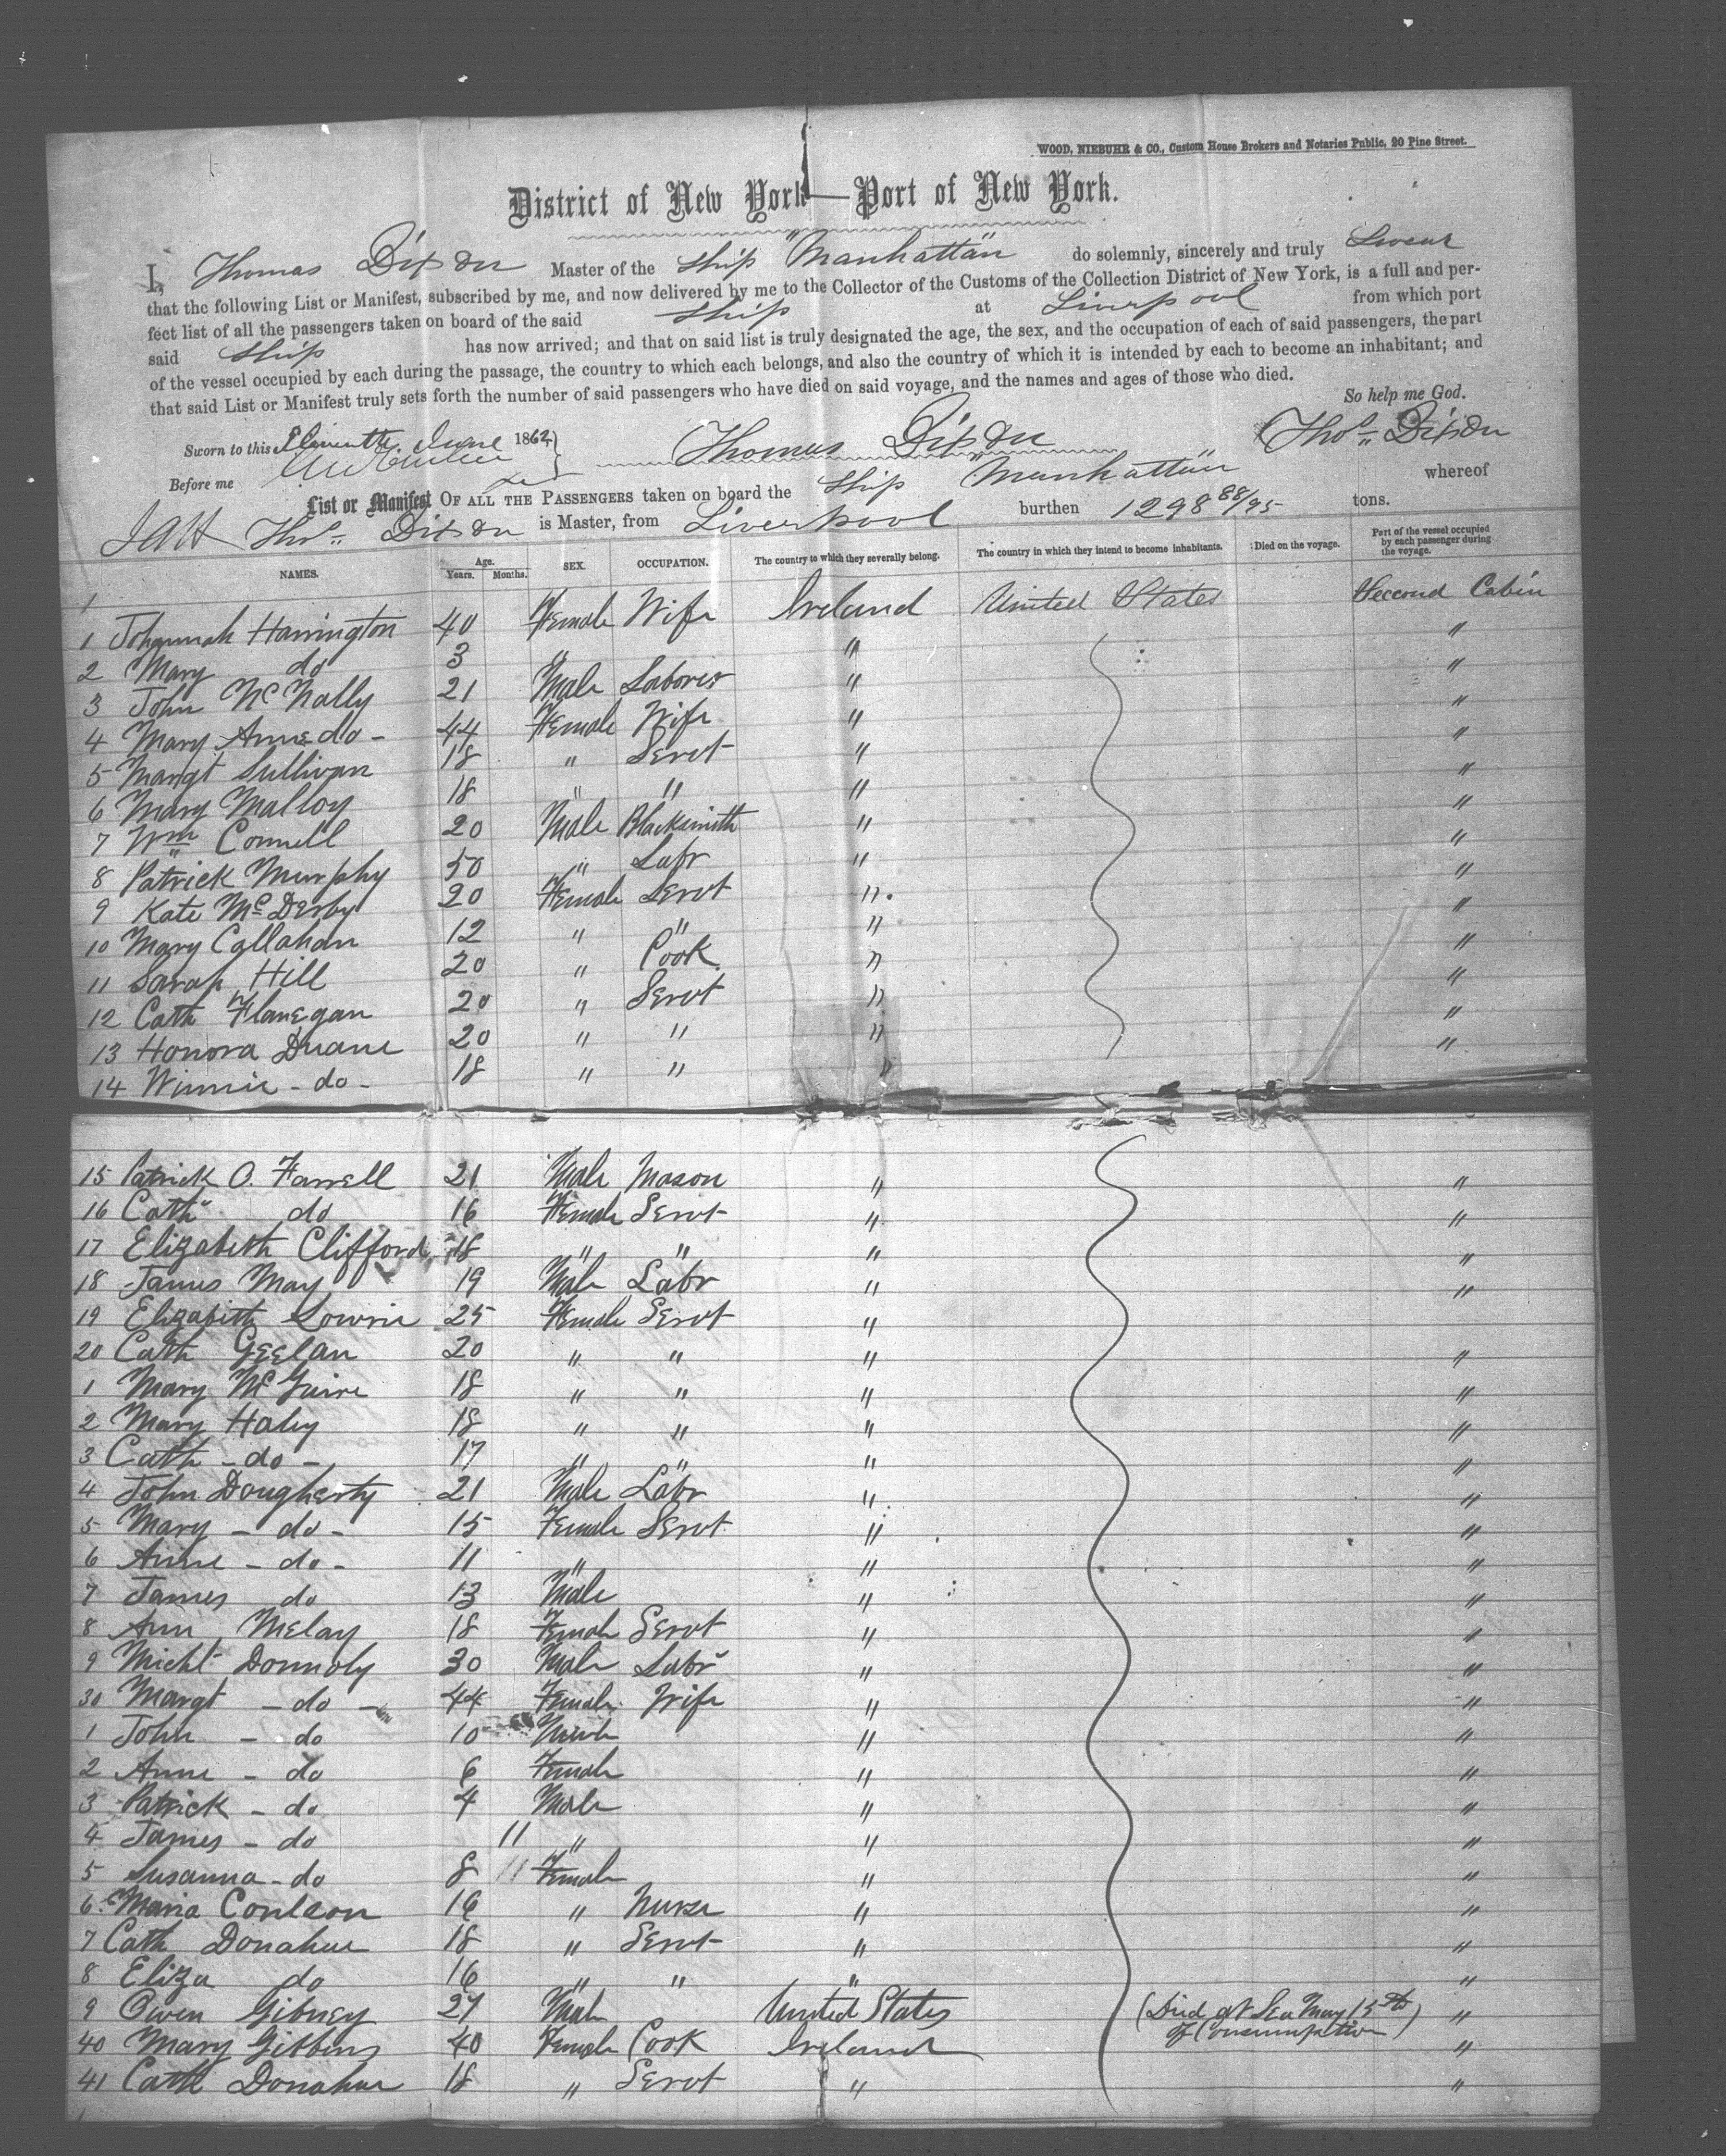 WOOD, NIEBUHR & CO., Custom House Brokers and Notaries Public, 20 Pine Street.
District of New York—Port of New York.
I, Thomas Dixon Master of the Ship "Manhattan" do solemnly, sincerely and truly Swear
that the following List or Manifest, subscribed by me, and now delivered by me to the Collector of the Customs of the Collection District of New York, is a full and per-
fect list of all the passengers taken on board of the said Ship at Liverpool from which port
said Ship has now arrived; and that on said list is truly designated the age, the sex, and the occupation of each of said passengers, the part
of the vessel occupied by each during the passage, the country to which each belongs, and also the country of which it is intended by each to become an inhabitant; and
that said List or Manifest truly sets forth the number of said passengers who have died on said voyage, and the names and ages of those who died.
So help me God.
Sworn to this Eleventh June 1862 Thomas Dixon Thos Dixon
Before me
List or Manifest OF ALL THE PASSENGERS taken on board the Ship "Manhattan" whereof
Thos Dixon is Master, from Liverpool burthen 1298 88/95 tons.
NAMES. Age. Years. Months. SEX. OCCUPATION. The country to which they severally belong. The country in which they intend to become inhabitants. Died on the voyage. Part of the vessel occupied by each passenger during the voyage.
1
1 Johannah Harrington 40 Female Wife Ireland United States Seccond Cabin
2 Mary do 3 " " "
3 John McNally 21 Male Laborer " "
4 Mary Anne do - 44 Female Wife " "
5 Margt Sullivan 18 " Servt " "
6 Mary Malloy 18 " " " "
7 Wm Connell 20 Male Blacksmith " "
8 Patrick Murphy 50 " Labr " "
9 Kate McDerby 20 Female Servt " "
10 Mary Callahan 12 " " " "
11 Sarah Hill 20 " Cook " "
12 Cath Flanegan 20 " Servt " "
13 Honora Duane 20 " " " "
14 Winnie - do - 18 " " " "
15 Patrick O. Farrell 21 Male Mason " "
16 Cath do 16 Female Servt " "
17 Elizabeth Clifford 18 " " " "
18 James May 19 Male Labr " "
19 Elizabeth Lowrie 25 Female Servt "
20 Cath Geelan 20 " " " "
1 Mary McGuire 18 " " " "
2 Mary Haley 18 " " " "
3 Cath - do - 17 " " " "
4 John Dougherty 21 Male Labr " "
5 Mary - do - 15 Female Servt " "
6 Anne - do - 11 " " "
7 James do 13 Male " "
8 Ann Melay 18 Female Servt " "
9 Michl Donnoly 30 Male Labr " "
30 Margt - do - 44 Female Wife " "
1 John - do 10 Male " "
2 Anne - do 6 Female " "
3 Patrick - do 4 Male " "
4 James - do 11 " " "
5 Susanna - do 8 11 Female " "
6 Maria Conleon 16 " Nurse " "
7 Cath Donahue 18 " Servt " "
8 Eliza do 16 " " " "
9 Owen Gibney 27 Male United States (Died at Sea May 13th of Consumption) "
40 Mary Gibbins 40 Female Cook Ireland "
41 Cath Donahue 18 " Servt " "